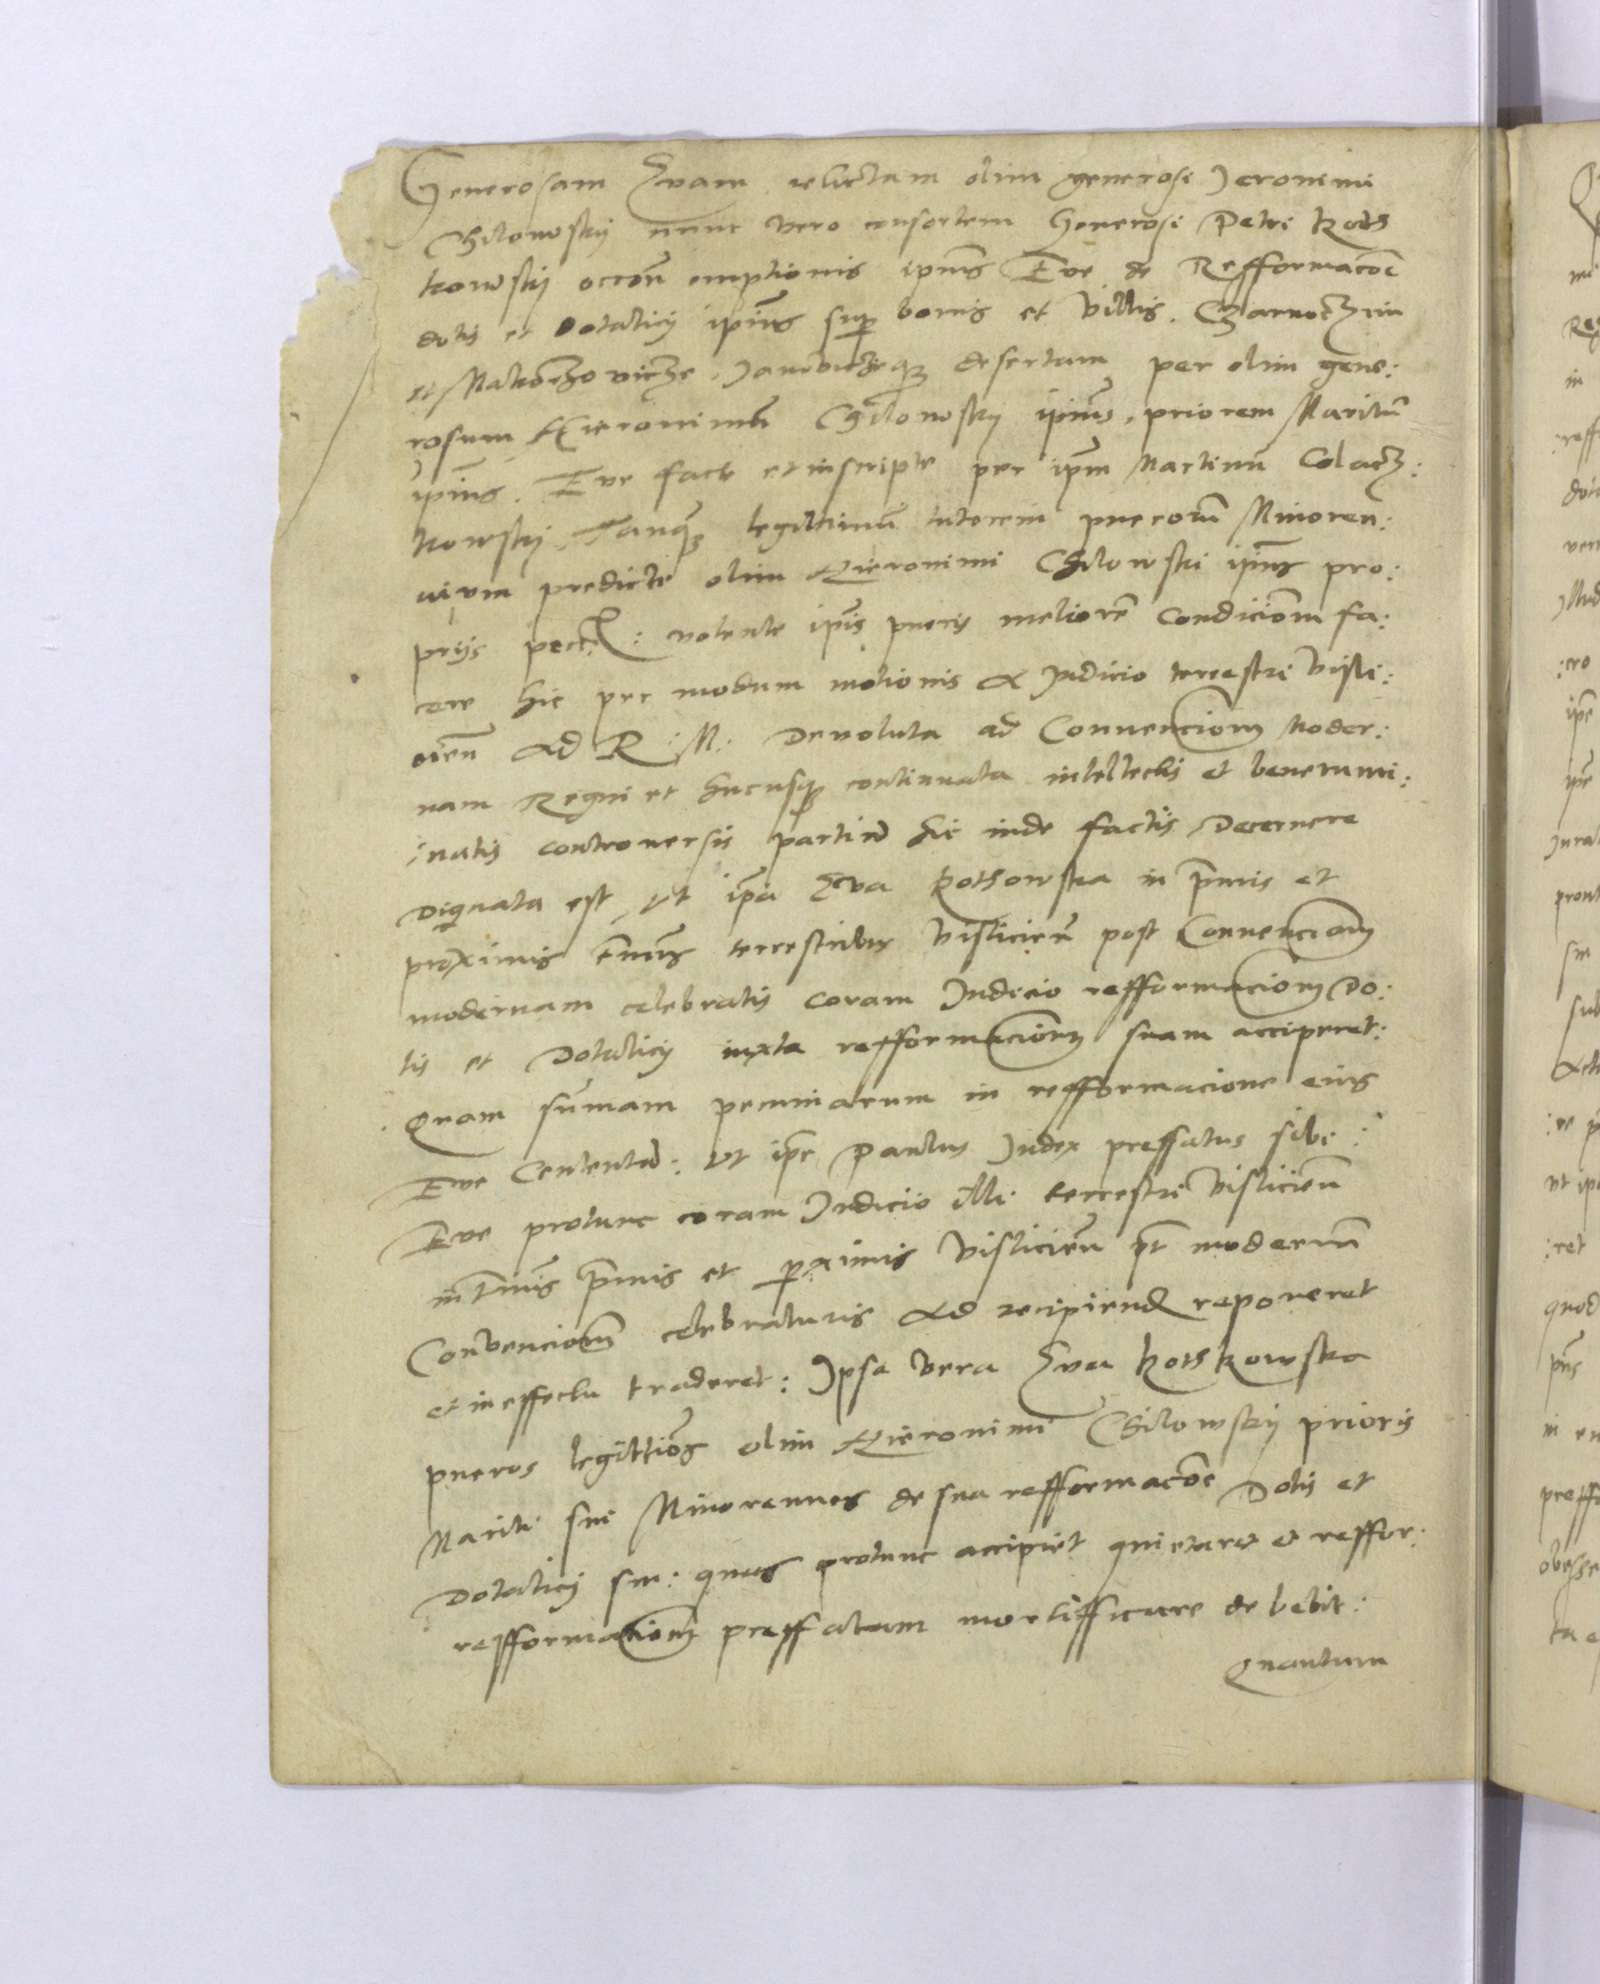 Generosam Evam relictam olim generosi Jeronimi
Chilowskij nunc vero consortem Generosi Petri Koth
kowskij occōn emptionis ipius Eve de Refformacōe
dotis et Dotalicij ipius sup bonis et villis
et desertam per olim gene:
rosum Hieronimū Chilowskij ipius priorem Maritū
ipius Eve facte et inscripte per ipm Martinū
kowskij Tanq legittimū tutorem puerorū Minoren:
nium predicte olim Hieronimi Chilowski ipius pro:
priis pecc: volente ipis pueris meliorē Condiciom fa:
cere hic per modum motionis A Judicio terrestri Visli:
cień Ad R: M: Devoluta ad Convenciom Moder:
nam Regni et hucusq continuata intellectis et bene rumi:
:natis controversis partiū hic inde factis Decernere
Dignata est, Ut ipa Eva Kothowska in pmis et
proximis Tmis terrestribus Visliciēn post Convenciom
modernam celebratis coram Judicio refformaciom Do:
tis et Dotalicij iuxta refformaciom suam acciperet:
Quam summam pecuniarum in refformacione eius
Eve Contentā: Ut ipe Paulus Judex preffatus sibi:
Eve protunc coram Judicio illi terrestri Visliciēn
in Tmis pmis et pximis Visliciēn pt modernā
Convenciom celebraturis Ad recipiend reponeret
et in effectu traderet: Ipsa vera Eva Kothkowska
pueros legittios olim Hieronimi Chilowskij prioris
Mariti sui Minorennes de sua refformacōe Dotis et
Dotalicij sui: quas protunc accipiet quietaret et reffor:
refformaciom preffatam mortifficare debebit:
Quantum